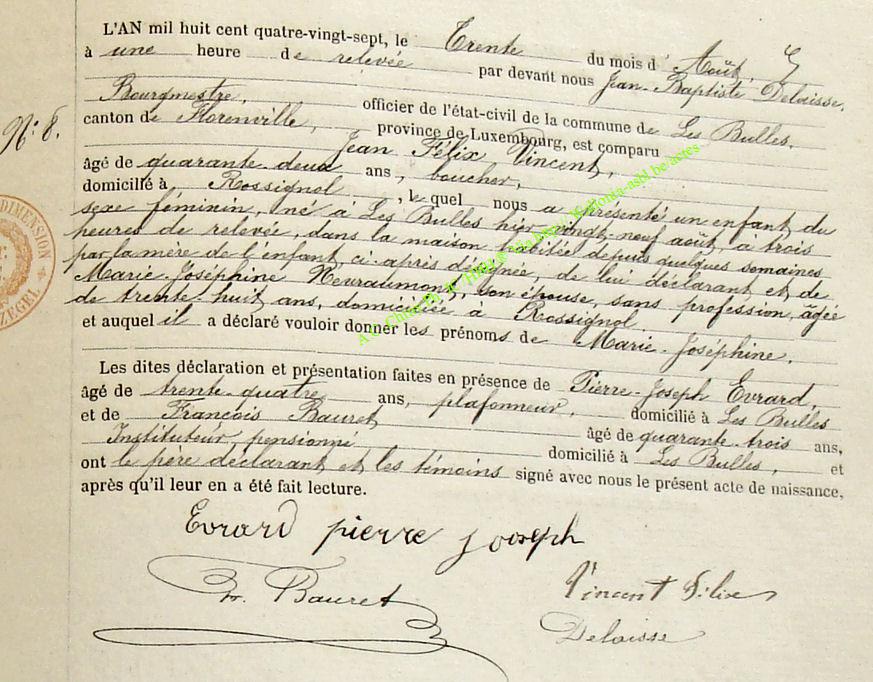 L'AN mil huit cent quatre-vingt-sept, le Trente du mois d'Août,
à une heure de relevée par devant nous Jean-Baptiste Delaisse,
Bourgmestre, officier de l'état-civil de la commune de Les Bulles,
N: 8.
canton de Florenville, province de Luxembourg, est comparu
Jean Félix Vincent,
âgé de quarante-deux ans, boucher,
domicilié à Rossignol, lequel nous a présenté un enfant du
sexe féminin, né à Les Bulles hier vingt-neuf août, à trois
heures de relevée, dans la maison habitée depuis quelques semaines
par la mère de l'enfant ci-après désignée, de lui déclarant et de
Marie-Joséphine Neuraumont, son épouse, sans profession, âgée
de trente-huit ans, domiciliée à Rossignol
et auquel il a déclaré vouloir donner les prénoms de Marie-Joséphine.
Les dites déclaration et présentation faites en présence de Pierre-Joseph Evrard,
âgé de trente-quatre ans, plafonneur, domicilié à Les Bulles
et de François Bauret âgé de quarante-trois ans,
Instituteur pensionné domicilié à Les Bulles, et
ont le père déclarant et les témoins signé avec nous le présent acte de naissance,
après qu'il leur en a été fait lecture.
Evrard pierre Jooseph
Bauret
Vincent Félix
Delaisse
DIMENSION
ZEGEL